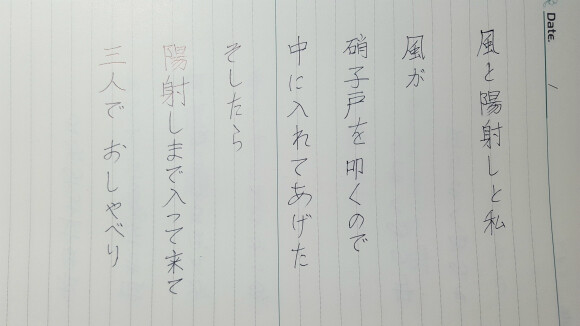 Date.
風と陽射しと私
風が
硝子戸を叩くので
中に入れてあげた
そしたら
陽射しまで入って来て
三人で おしゃべり